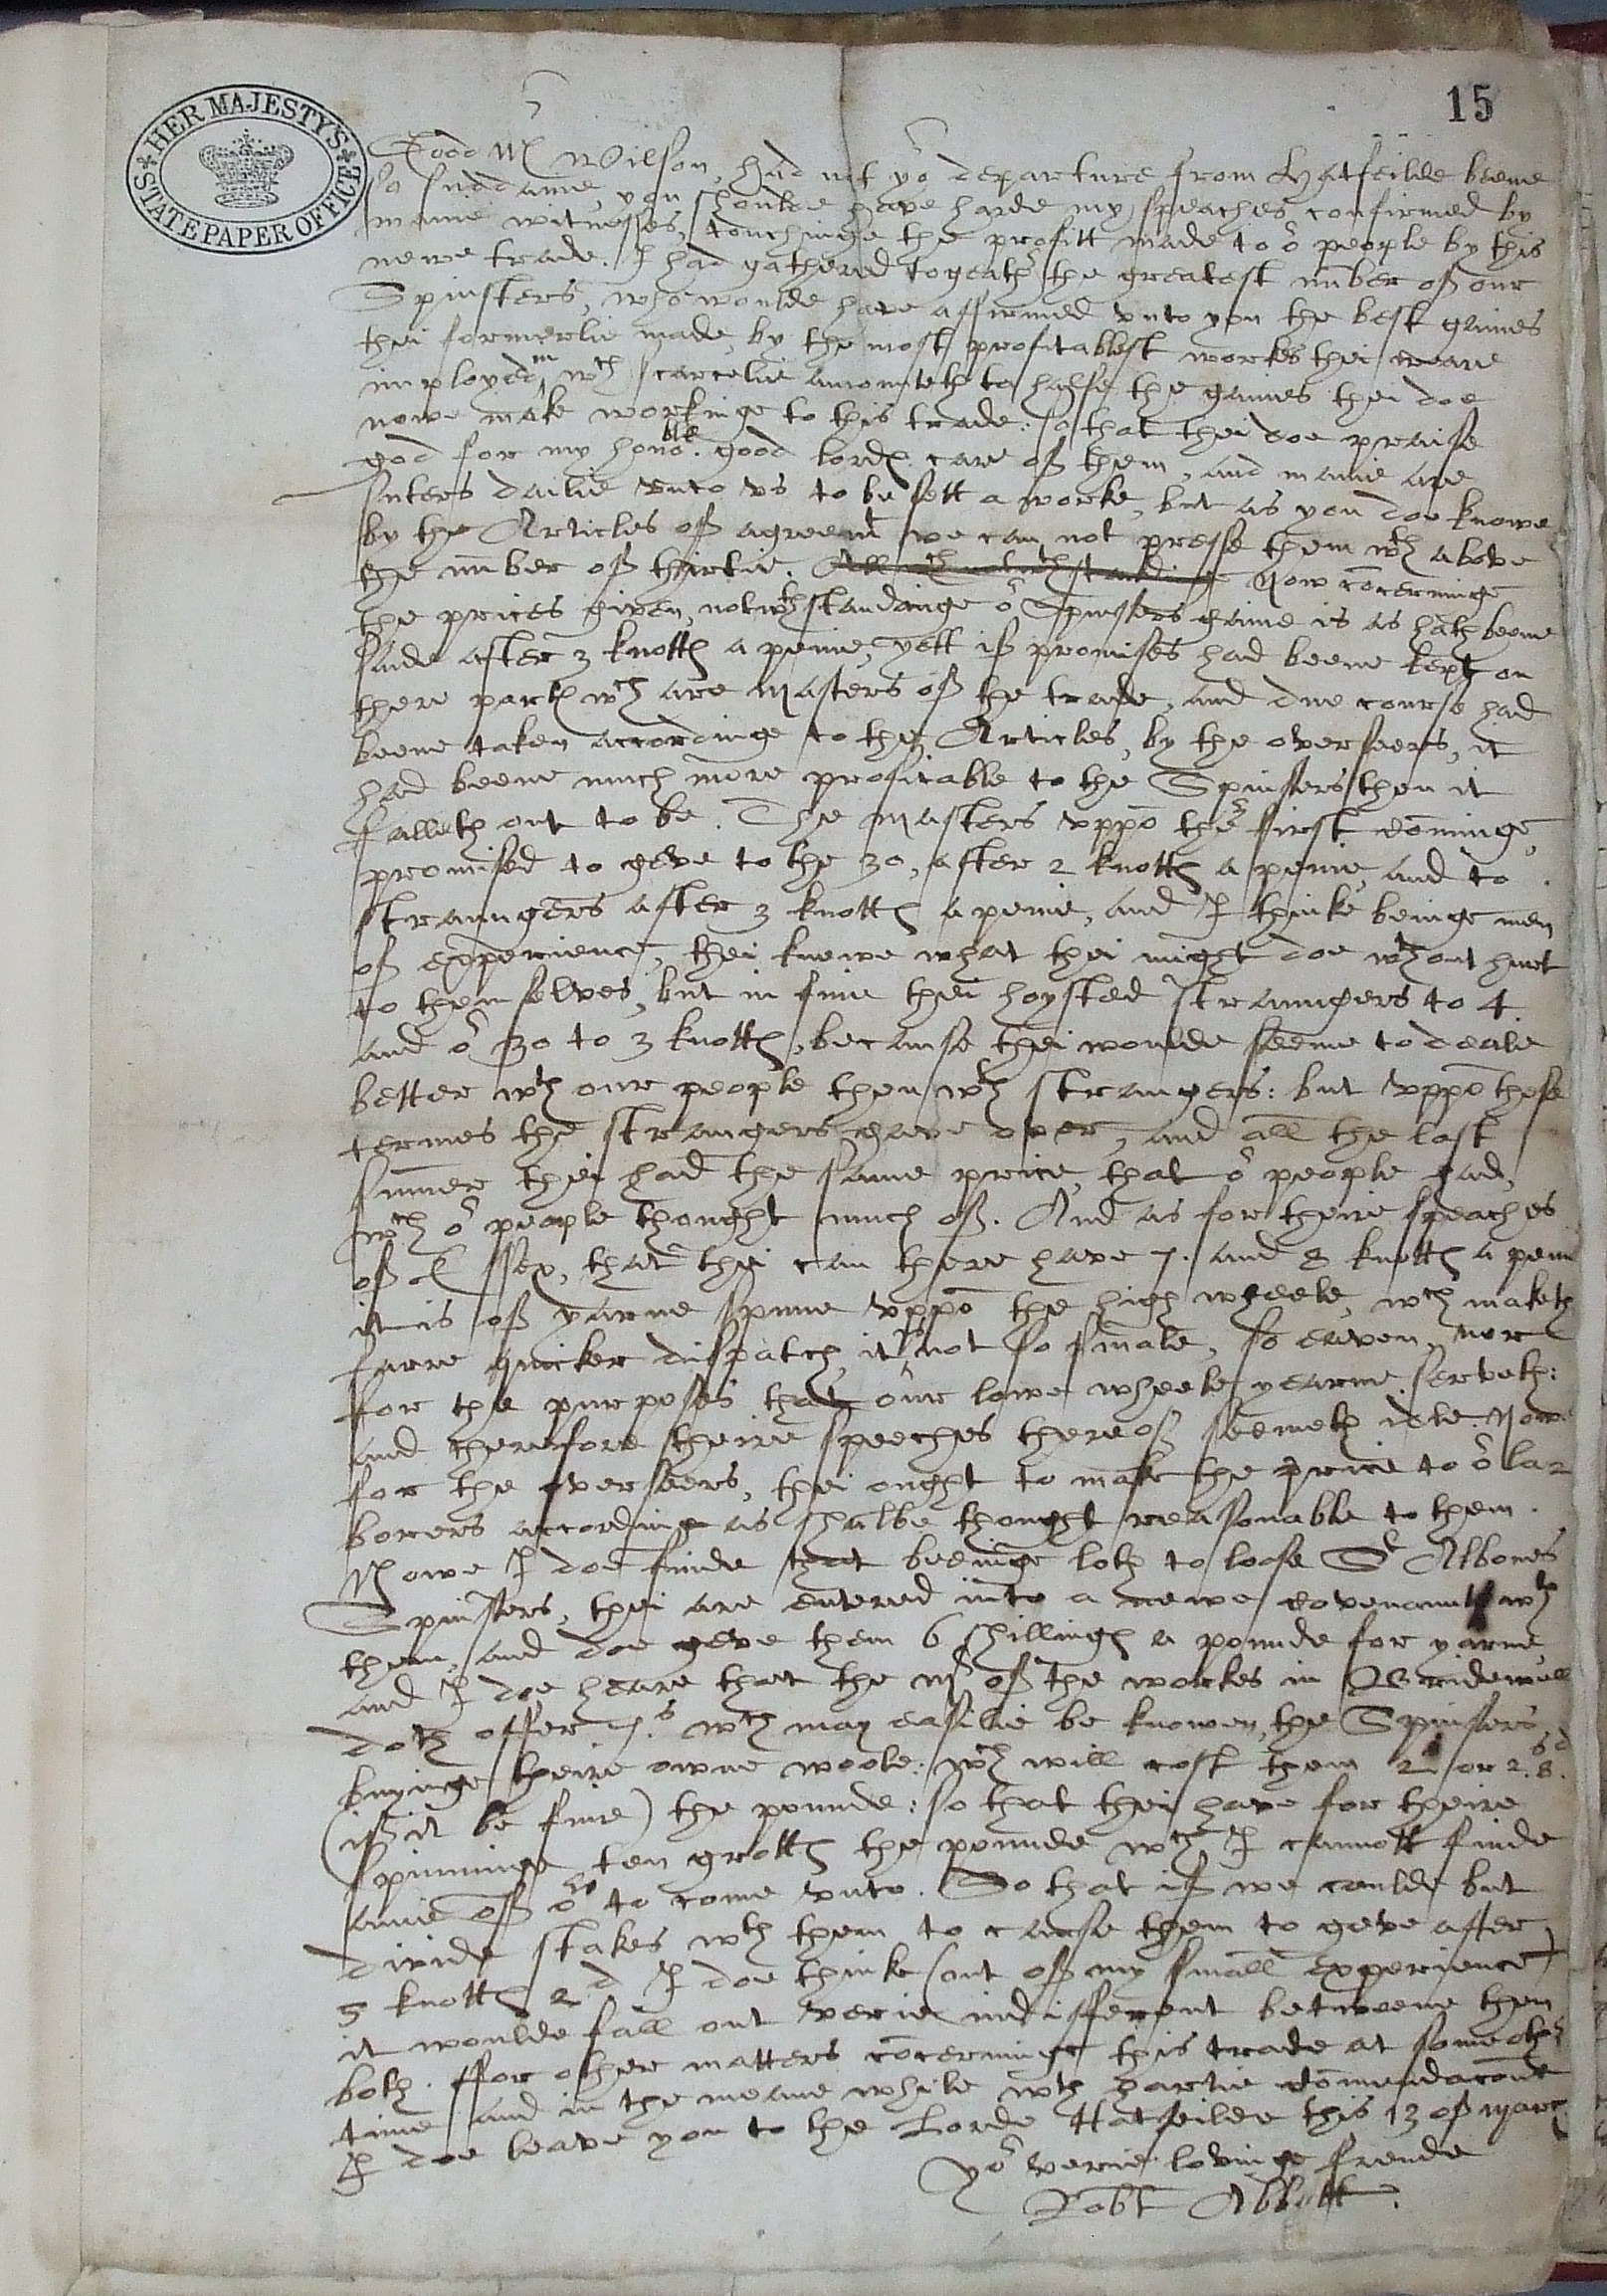 15
HER MAJESTY'S
STATE PAPER OFFICE
Good Mr Wilson, had not yor departure from Hatfeilde beene
so suddaine, you shoulde have harde my speaches confirmed by
manie witnesses, touchinge the profitt made to or people by this
newe trade. I had gathered togeathr the greatest nuber of our
Spinsters, who woulde have affirmed unto you the best gaines
thei formerlie made, by the most profitablest workes thei weare
imployed in, wch scarcelie amounteth to halfe the gaines thei doe
nowe make workinge to this trade: so that thei doe praise
god for my honoble. good lordes care of them, and manie are
suters dailie unto us to be sett a worke, but as you doe knowe
by the Articles of agreemt we can not presse them wth above
the nuber of thirtie. All wch notwthstandinge Now concerninge
the prices given, notwthstandinge or Spinsters gaine is as hath beene
saide after 3 knottes a penie, yett if promises had beene kept on
there partes wch are Masters of the trade, and due course had
beene taken accordinge to the Articles, by the overseers, it
had beene much more profitable to the Spinsters then it
falleth out to be. The Masters uppo their first cominge,
promised to geve to the 30, after 2 knottes a penie, and to
straungers after 3 knottes a penie, and I thinke beinge men
of experience, thei knewe what thei might doe wthout hurt
to themselves, but in fine thei hoysted straungers to 4
and or 30 to 3 knottes, because thei woulde seeme to deale
better wth our people then wth strangers: but uppo these
termes the strangers gave over, and all the last
sumer thei had the same price, that or people had,
wch or people thought much of. And as for theire speaches
of Essex, that thei can there have 7. and 8 knottes a peni
it is of yarne spune uppo the high wheele, wch maketh
farre quicker dispatch, it is not so smale, so eaven, nor
for the purposes that our lowe wheele yearne serveth:
and therefore theire speeches thereof seemeth idle. Nowe
for the overseers, thei ought to make the price to or la=
borers according as shalbe thought reasonable to them.
Nowe I doe finde that beeinge loth to loose St Albones
Spinsters, thei are entered into a newe covenaunt wth
them, and doe geve them 6 shillinges a pounde for yarne
and I doe heare that the Mr of the workes in Bridewell
doth offer 7.s wch may easilie be knowen, the Spinsters
buyinge theire owne woole: wch will cost them 2s or 2s.8d.
(if it be fine) the pounde: so that thei have for theire
spinninge ten grottes the pounde wch I cannott finde
anie of ors to come unto. So that if we coulde but
divide stakes wth them to cause them to geve after
5 knottes 2d I doe thinke (out of my small experience)
it woulde fall out verie indifferent betweene them
both. ffor other matters concerninge this trade at some othr
time and in the meane while wth hartie comendacons
I doe leave you to the Lorde Hatfeilde this 13 of March
Yor verie lovinge frende
Robt Abbott.